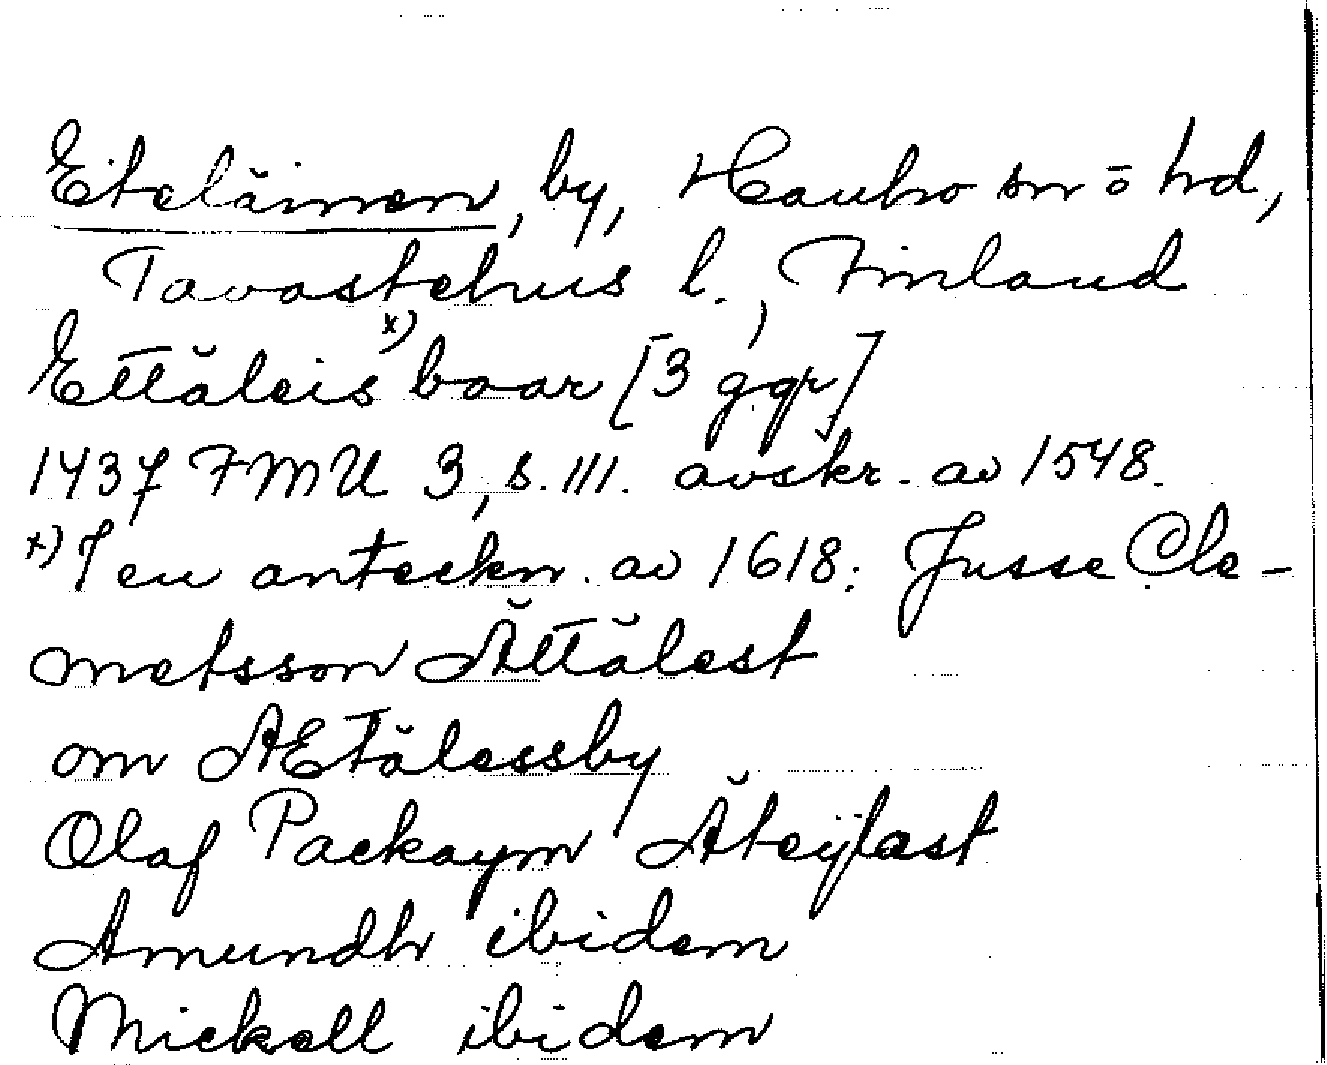 Eteläinen, by, Hauho sn o hd,
Tavastehus l., Finland
Ettäleis x) boar [3 ggr]
1437 FMU 3, s. 111. avskr. av 1548.
x) I en anteckn. av 1618: Jusse Cle-
metsson Ättälest
om AEtälessby
Olaf Packaym Äteÿlast
Amundh ibidem
Mickell ibidem